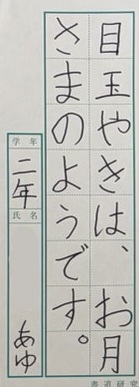 目玉やきは、お月
さまのようです。
学年
二年
氏名
あゆ